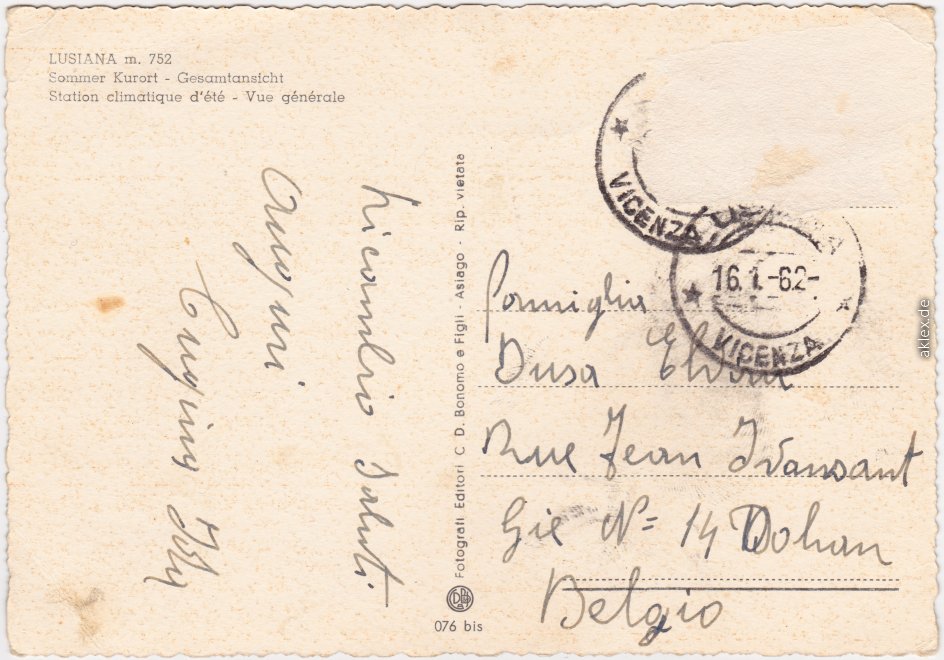 LUSIANA m. 752
Sommer Kurort - Gesamtansicht
Station climatique d'été - Vue générale
Ricambio Saluti
Auguri
Fotografi Editori C. D. Bonomo e Figli - Asiago - Rip. vietata
076 bis
VICENZA
16.1.-62-
VICENZA
Dusa
Rue Jean
N= 14 Dohan
Belgio
aklex.de